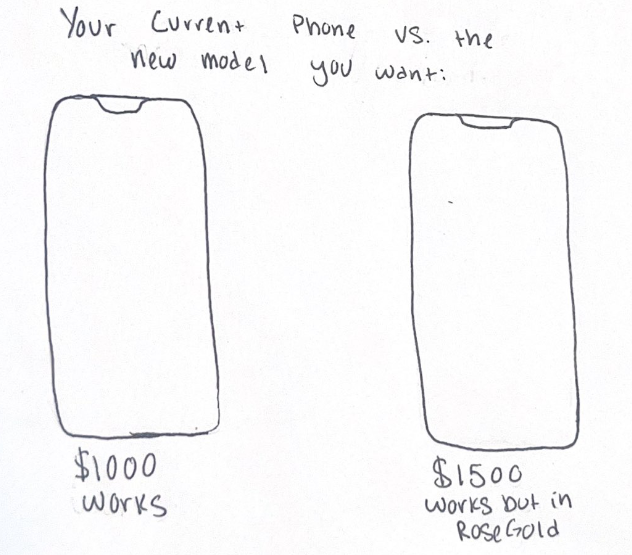 Your Current Phone vs. the
new model you want:
$1000
works
$1500
works but in
Rose Gold